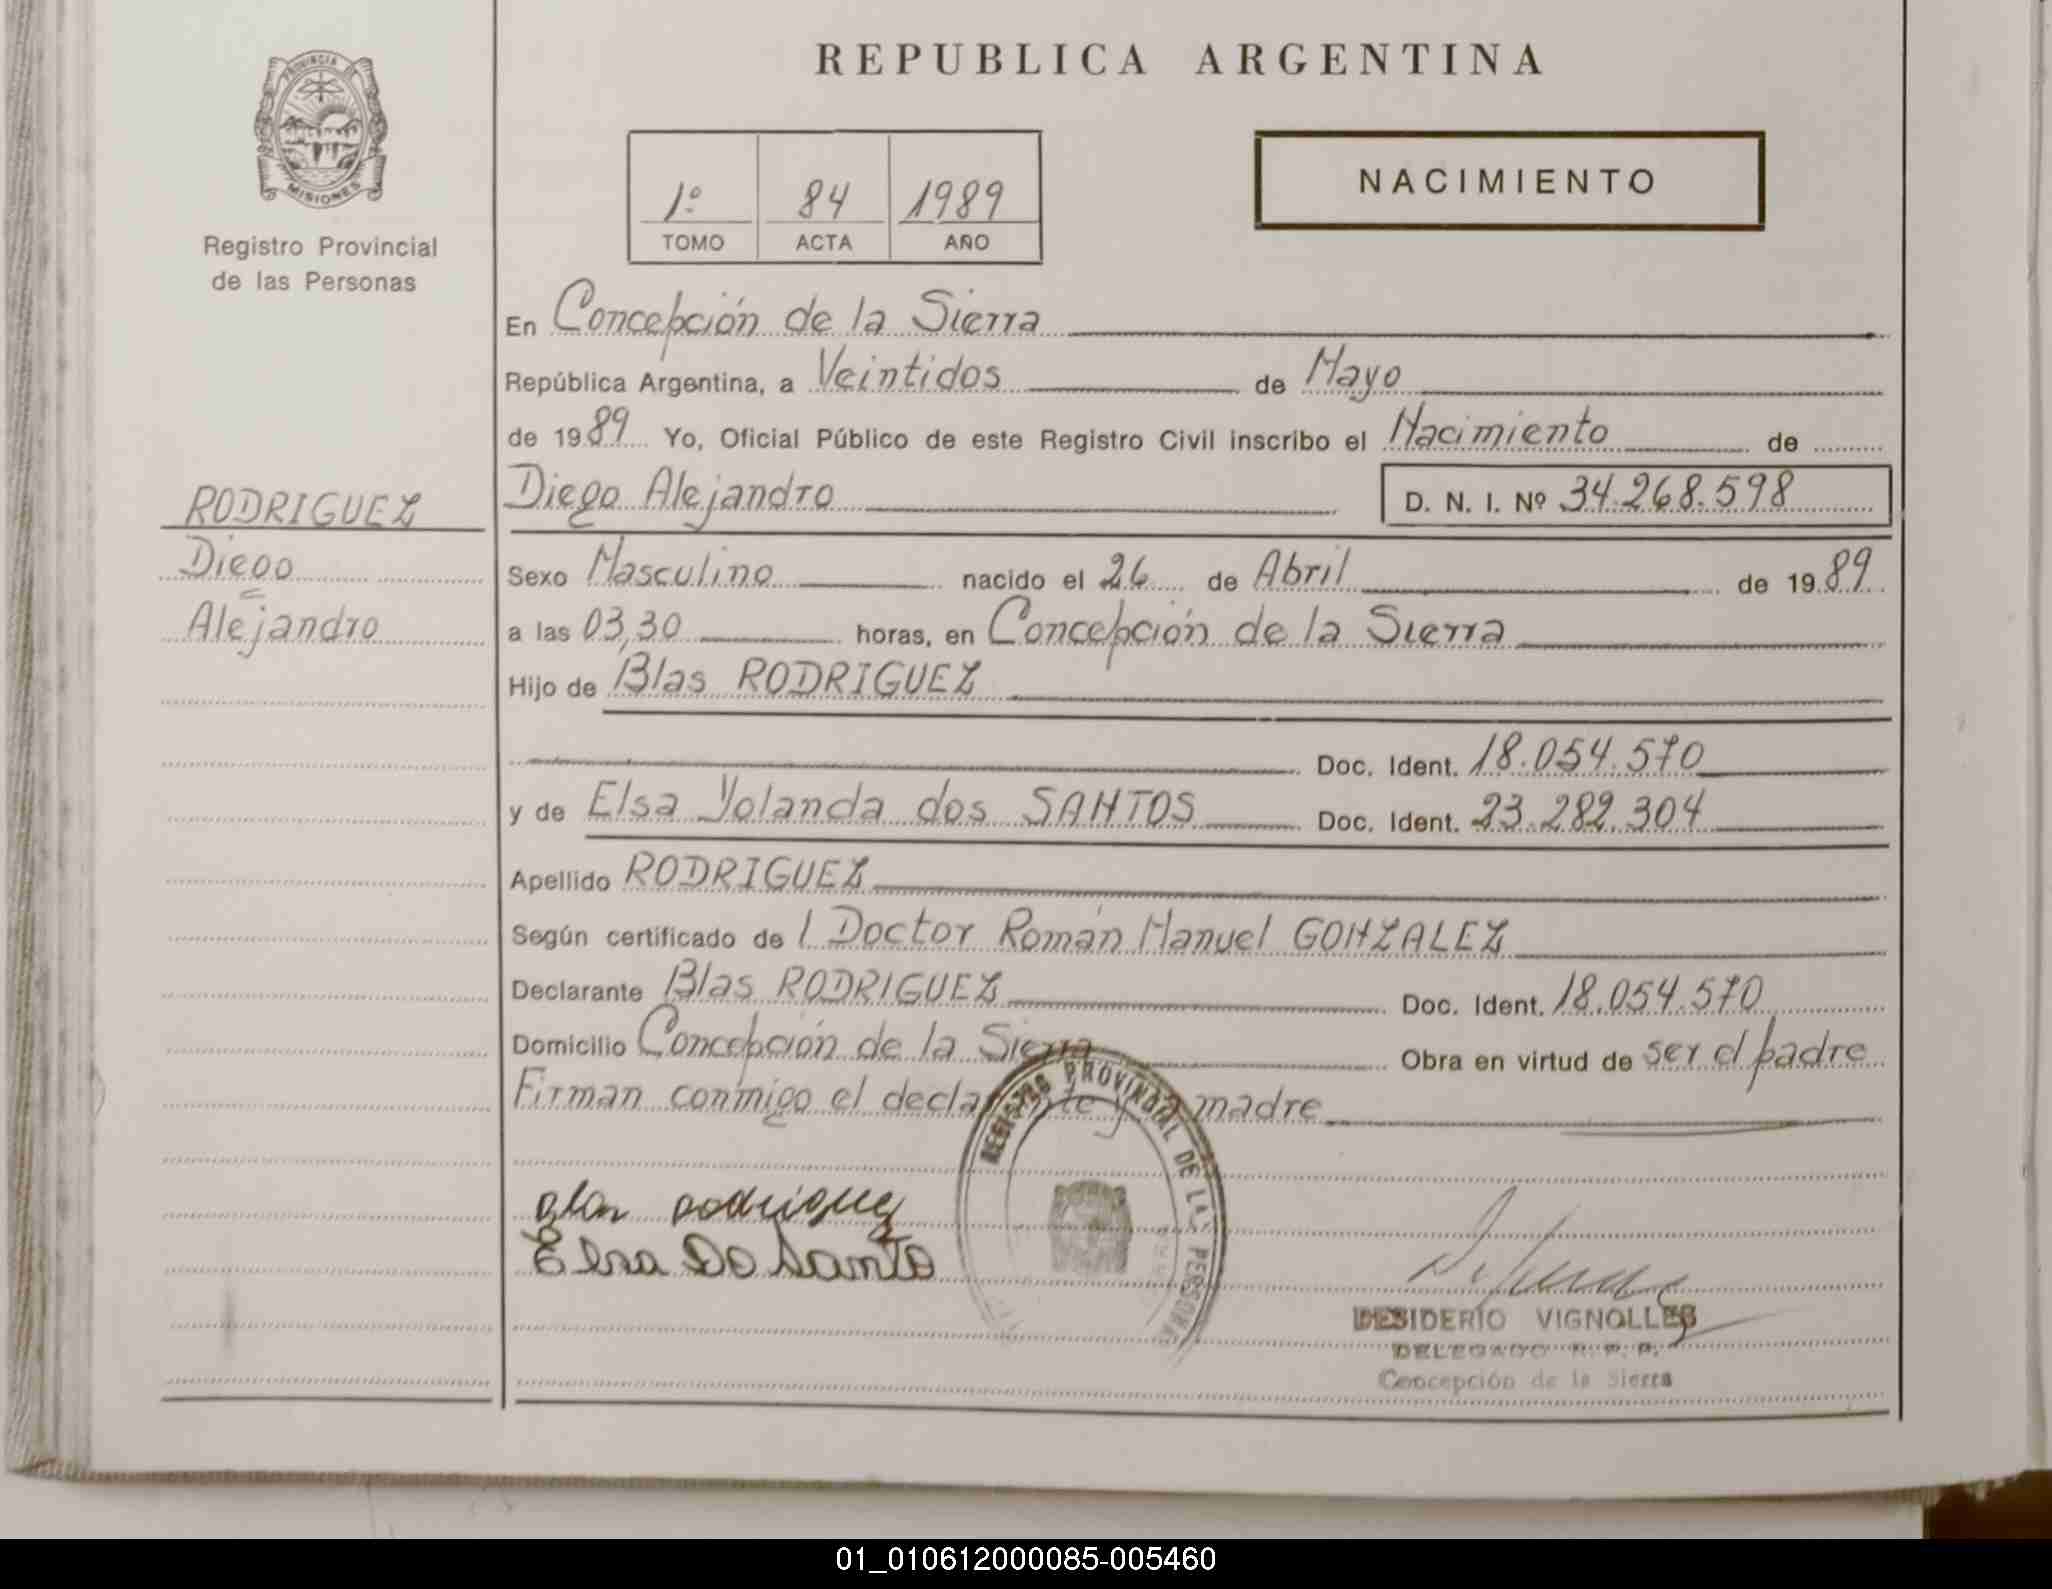 PROVINCIA DE
MISIONES
Registro Provincial
de las Personas
REPUBLICA ARGENTINA
1º 84 1989
TOMO ACTA AÑO
NACIMIENTO
En Concepción de la Sierra
República Argentina, a Veintidos de Mayo
de 1989 Yo, Oficial Público de este Registro Civil inscribo el Nacimiento de
Diego Alejandro D. N. I. Nº 34.268.598
RODRIGUEZ
Diego
Alejandro
Sexo Masculino nacido el 26 de Abril de 1989
a las 03,30 horas, en Concepción de la Sierra
Hijo de Blas RODRIGUEZ
Doc. Ident. 18.054.570
y de Elsa Yolanda dos SANTOS Doc. Ident. 23.282.304
Apellido RODRIGUEZ
Según certificado de l Doctor Román Manuel GONZALEZ
Declarante Blas RODRIGUEZ Doc. Ident. 18.054.570
Domicilio Concepción de la Sierra Obra en virtud de ser el padre
Firman conmigo el declarante y la madre
REGISTRO PROVINCIAL DE LAS PERSONAS
rodriguez
Elsa Do Santo
DESIDERIO VIGNOLLES
DELEGADO R. P. P.
Concepción de la Sierra
01_010612000085-005460